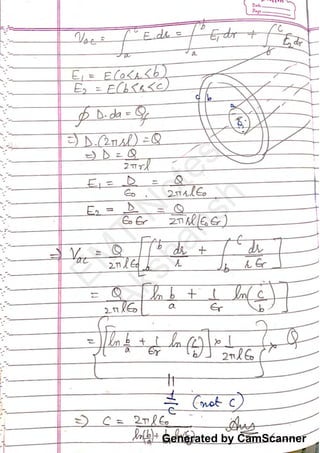 Date
Page
V_ac = ∫_a^c E.dr = ∫_a^b E₁dr + ∫_b^c E₂dr
E₁ = E(a<r<b)
E₂ = E(b<r<c)
c b a
∮ D.da = Q
⇒ D.(2πrl) = Q
⇒ D = Q / 2πrl
E₁ = D/ε₀ = Q / 2πrlε₀
E₂ = D/ε₀εr = Q / 2πrl(ε₀εr)
⇒ V_ac = Q/2πlε₀ [∫_a^b dr/r + ∫_b^c dr/rεr]
= Q/2πlε₀ [ln b/a + 1/εr ln(c/b)]
= {[ln b/a + 1/εr ln(c/b)] × 1/2πlε₀} × Q
||
1/C (not c)
⇒ C = 2πlε₀ Ans
ln(b/a) +
Generated by CamScanner